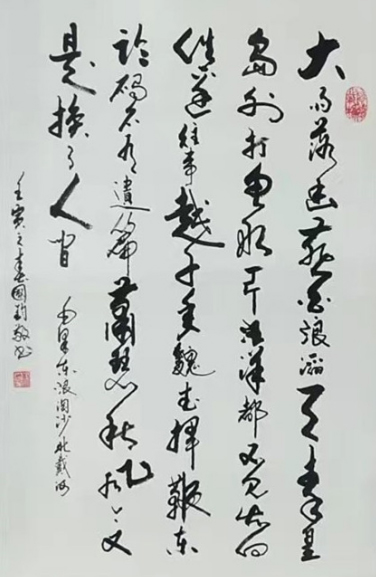 大雨落幽燕白浪滔天秦皇
岛外打鱼船一片汪洋都不见知向
谁边往事越千年魏武挥鞭东
临碣石有遗篇萧瑟秋风今又
是换了人间
毛泽东浪淘沙北戴河
壬寅之春国